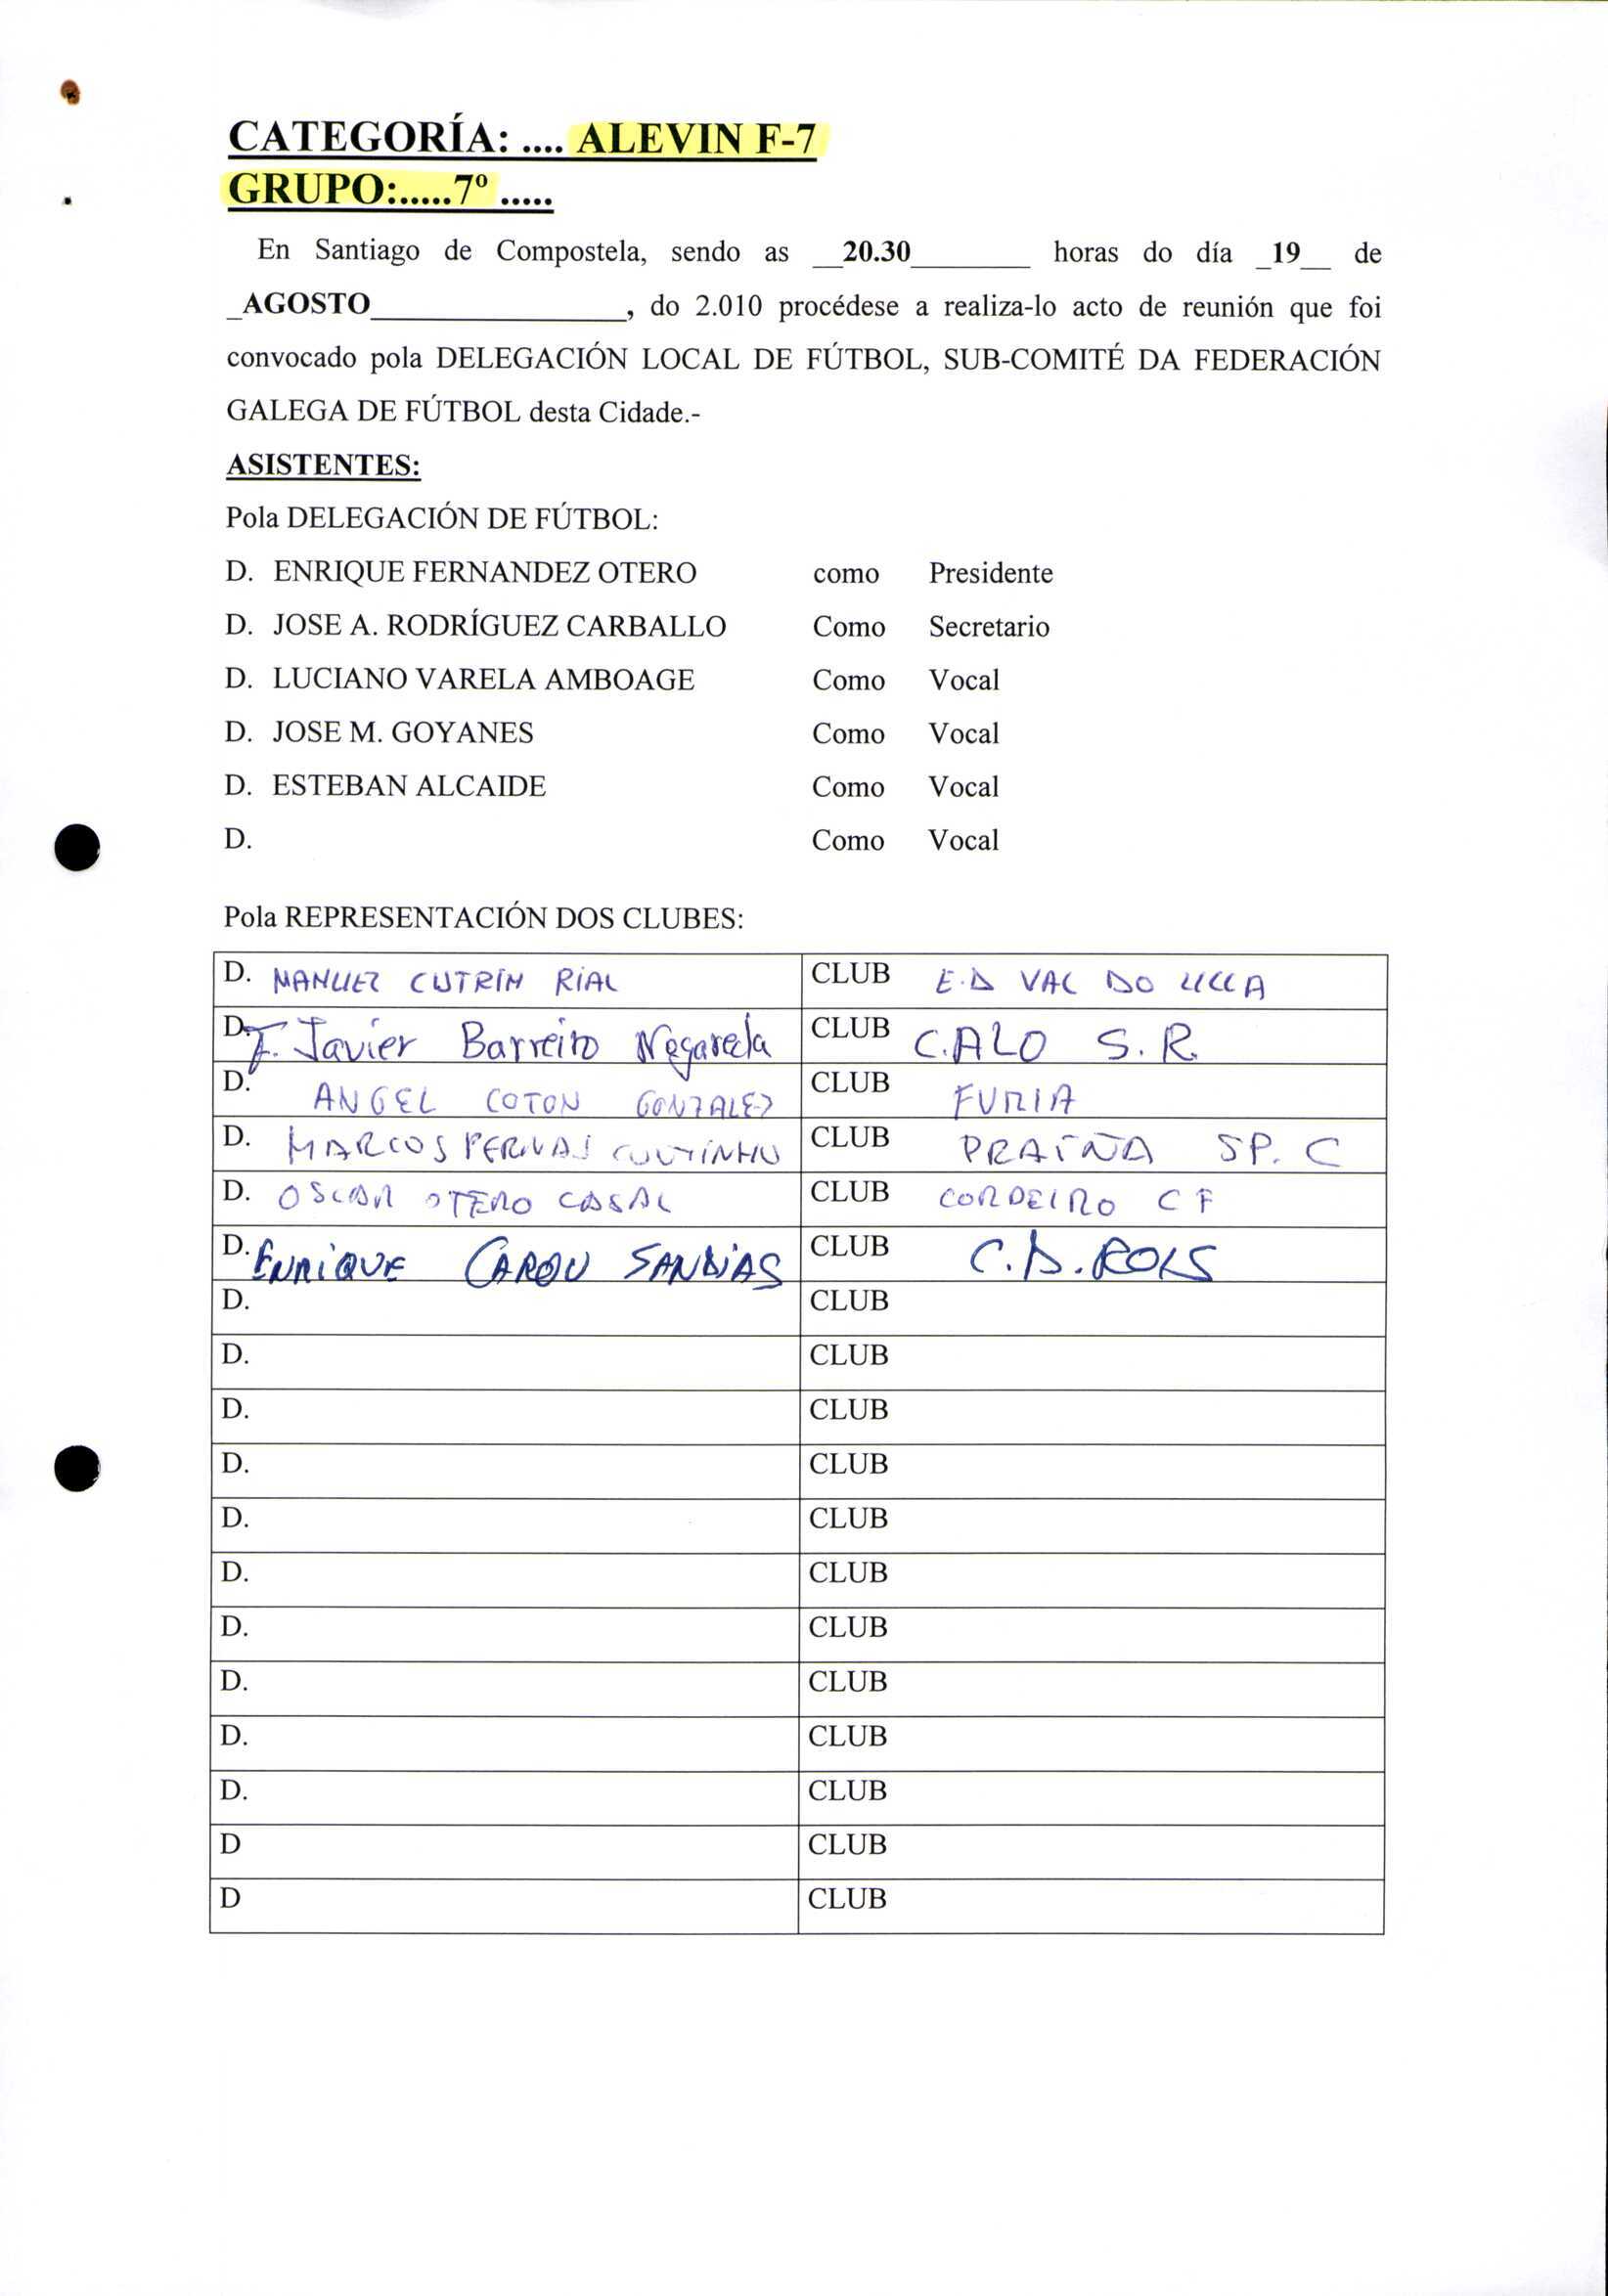 CATEGORÍA: .... ALEVIN F-7
GRUPO:.....7º .....
En Santiago de Compostela, sendo as __20.30________ horas do día _19__ de
_AGOSTO_________________, do 2.010 procédese a realiza-lo acto de reunión que foi
convocado pola DELEGACIÓN LOCAL DE FÚTBOL, SUB-COMITÉ DA FEDERACIÓN
GALEGA DE FÚTBOL desta Cidade.-
ASISTENTES:
Pola DELEGACIÓN DE FÚTBOL:
D. ENRIQUE FERNANDEZ OTERO como Presidente
D. JOSE A. RODRÍGUEZ CARBALLO Como Secretario
D. LUCIANO VARELA AMBOAGE Como Vocal
D. JOSE M. GOYANES Como Vocal
D. ESTEBAN ALCAIDE Como Vocal
D. Como Vocal
Pola REPRESENTACIÓN DOS CLUBES:
D. MANUEL CUTRIN RIAL CLUB E.D VAL DO ULLA
D. F. Javier Barreiro CLUB C.ALO S.R.
D. ANGEL COTON GONZALEZ CLUB FURIA
D. MARCOS PERNAS COUTINHO CLUB PRAIÑA SP. C
D. OSCAR OTERO CASAL CLUB CORDEIRO CF
D. ENRIQUE CAROU SANDIAS CLUB C.D. ROIS
D. CLUB
D. CLUB
D. CLUB
D. CLUB
D. CLUB
D. CLUB
D. CLUB
D. CLUB
D. CLUB
D. CLUB
D CLUB
D CLUB